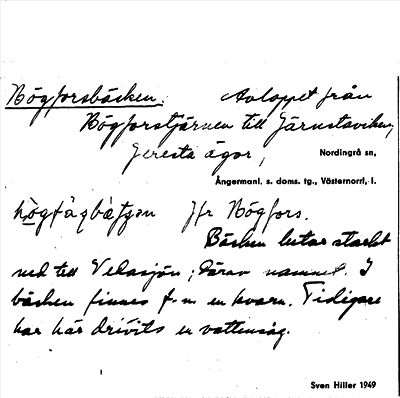 Högforsbäcken. Avloppet från
Högforstjärnen till Järnstaviken,
Jeresta ägor, Nordingrå sn,
Ångermanl. s. doms. tg., Västernorrl. l.
Jfr Högfors.
Bäcken lutar starkt
ned till Vekasjön; därav namnet. I
bäcken finnes f.n. en kvarn. Tidigare
har här drivits en vattensåg.
Sven Hiller 1949